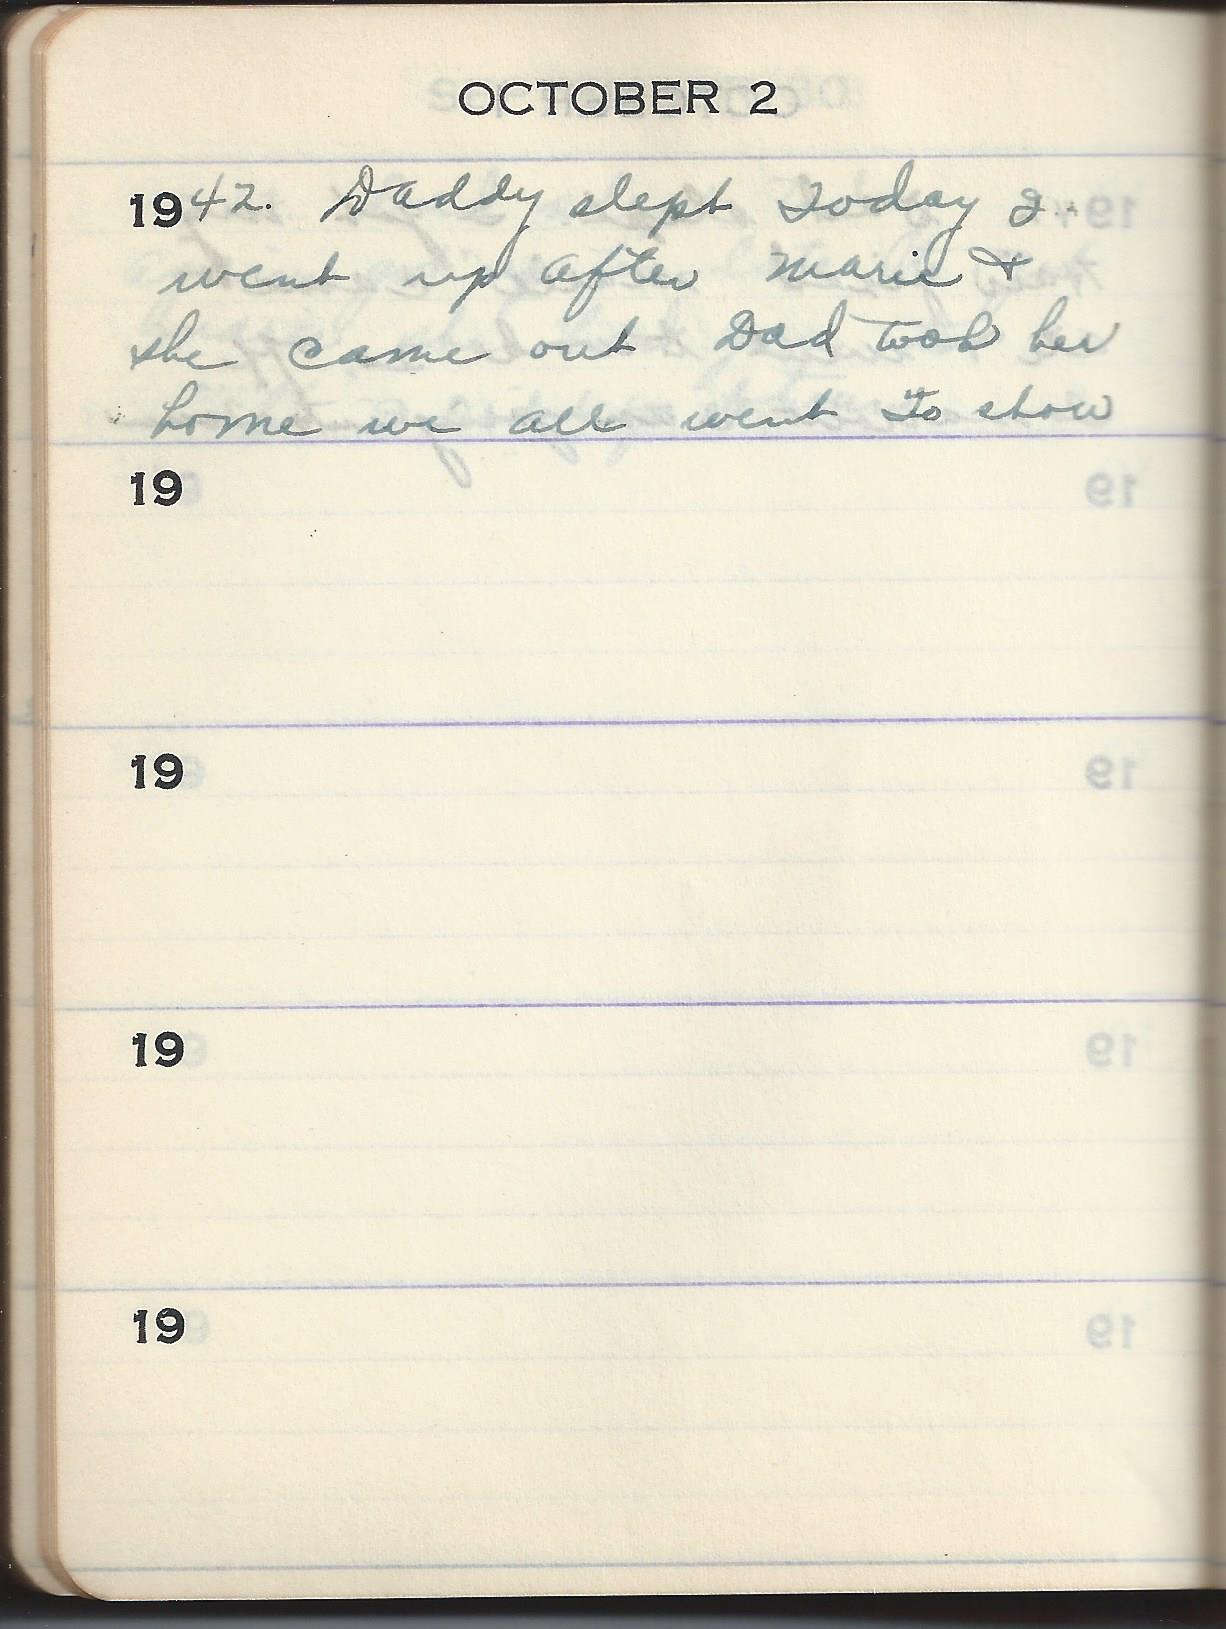 OCTOBER 2
1942. Daddy slept today I
went up after Marie &
she came out Dad took her
home we all went to show
19
19
19
19